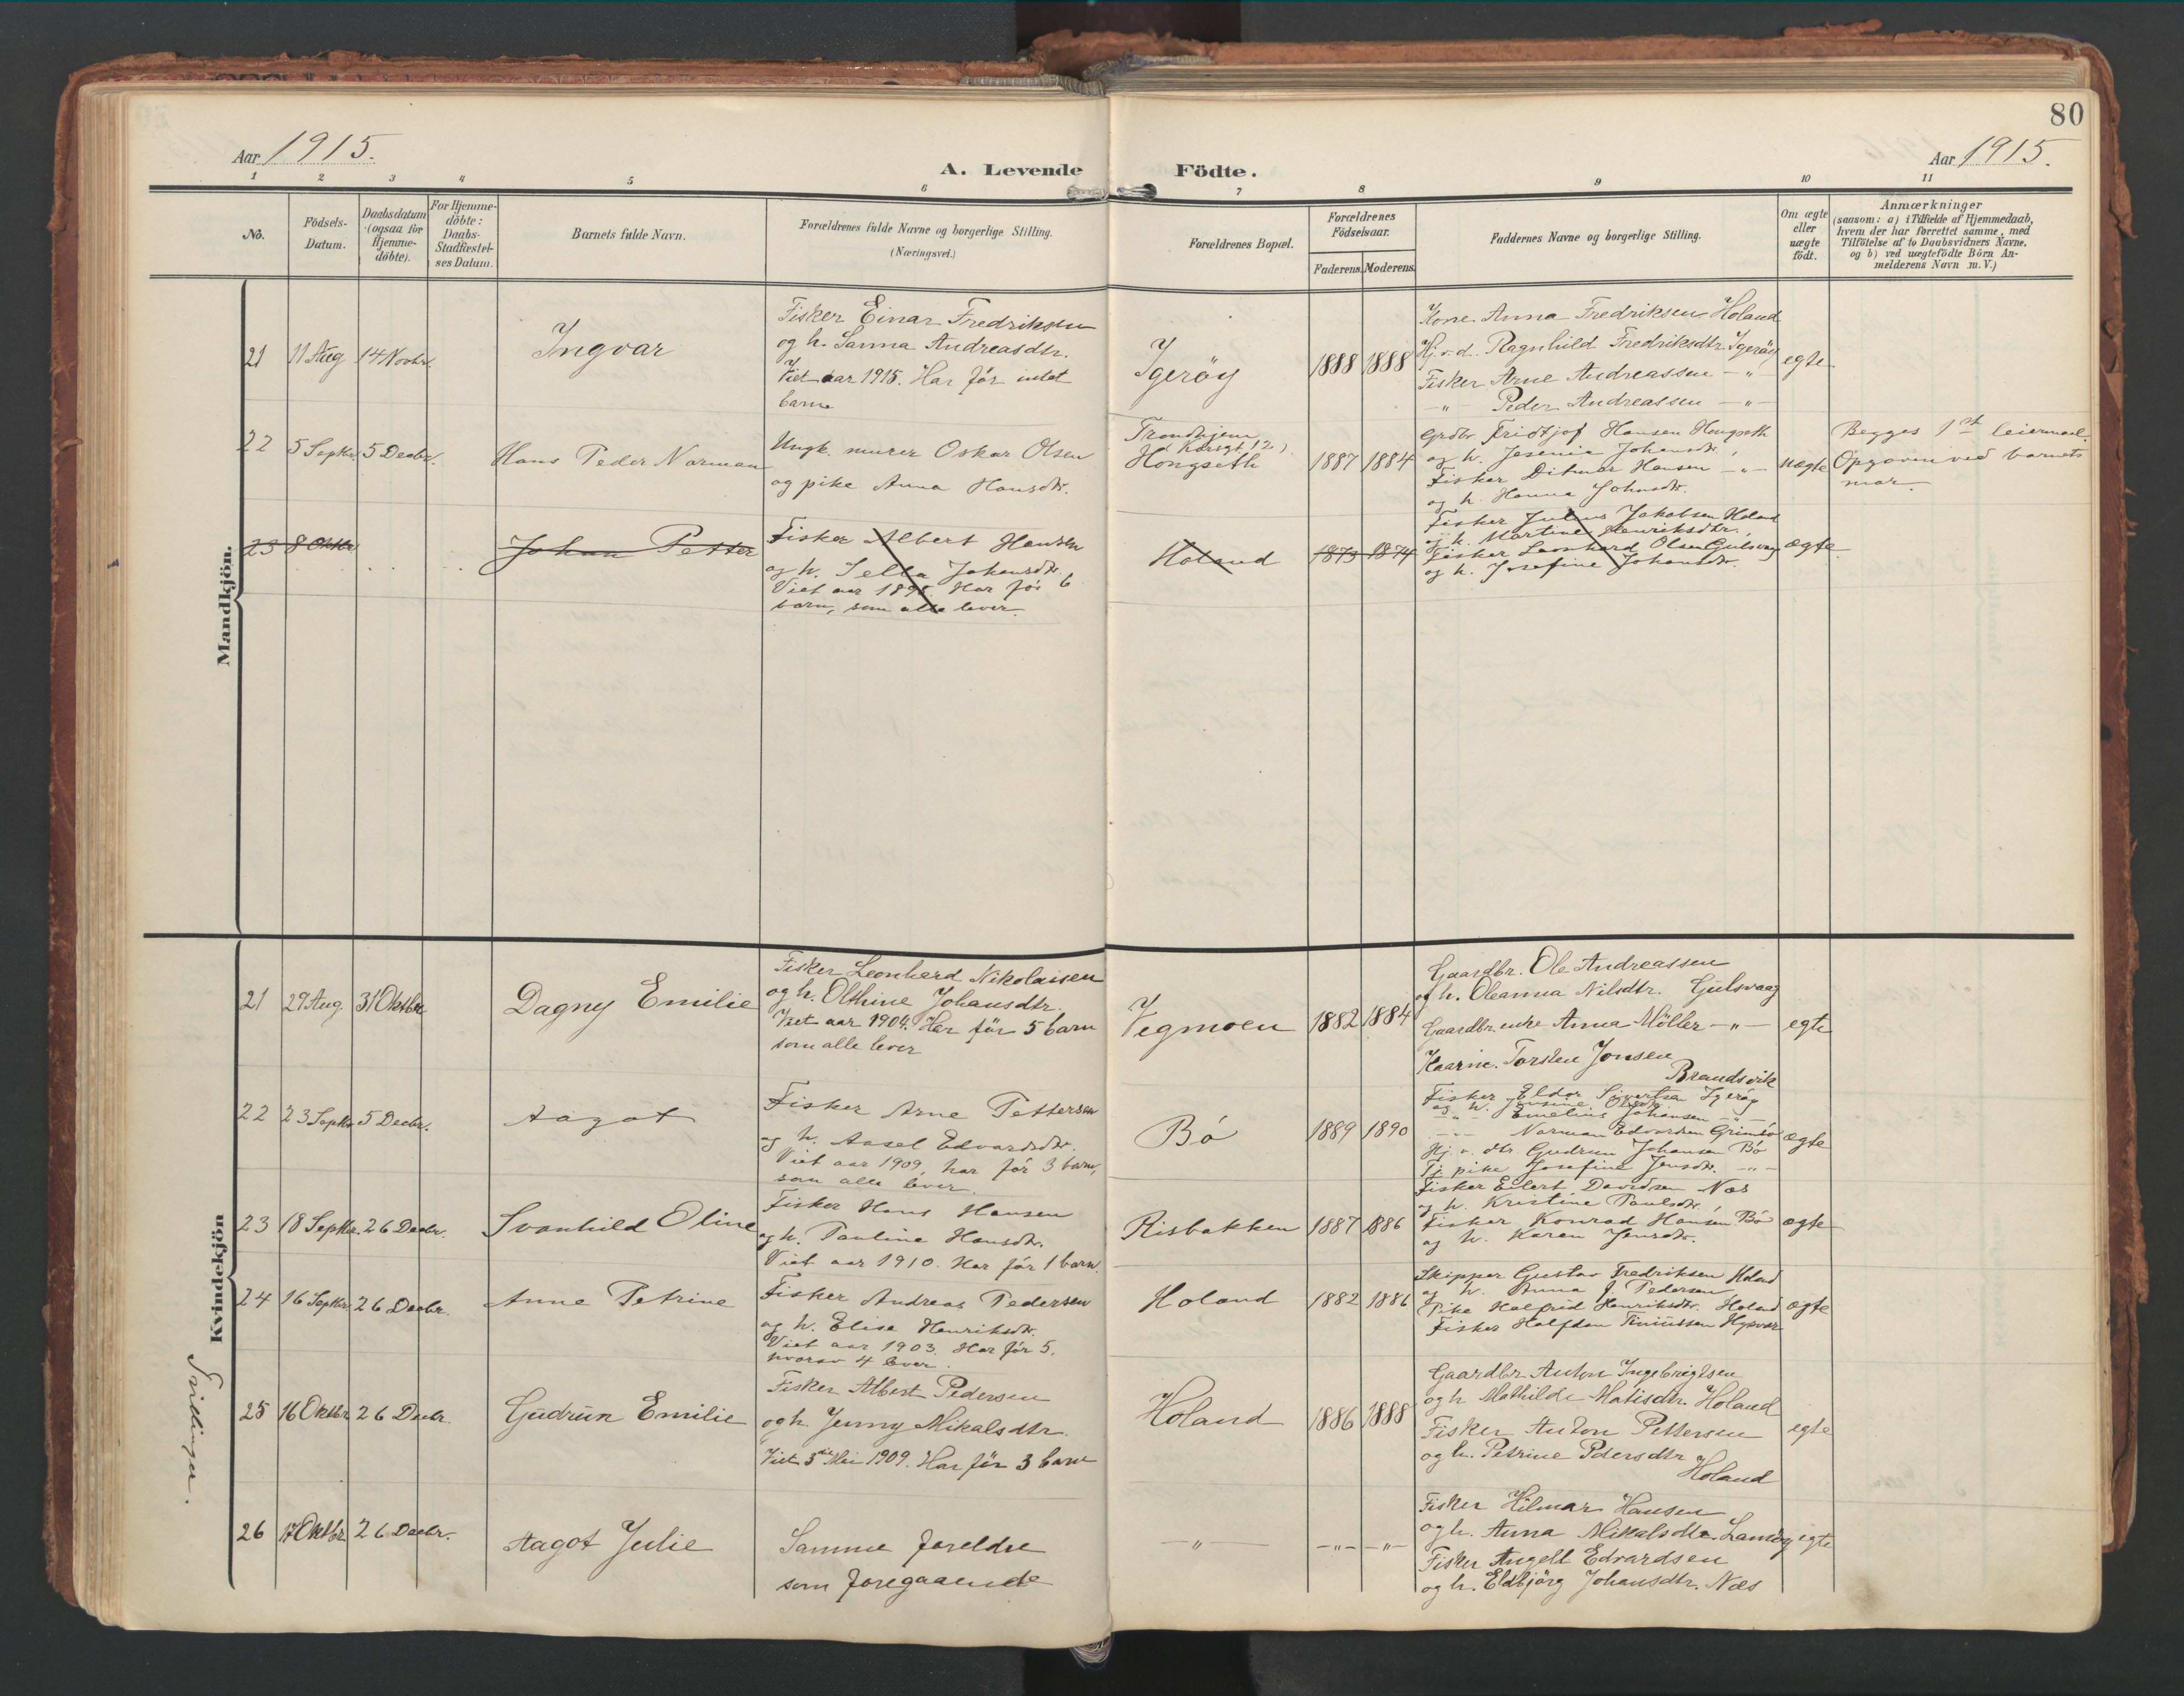 80
Aar 1915.
A. Levende Födte.
Aar 1915.
1 2 3 4 5 6 7 8 9 10 11
No.
Födsels-Datum.
Daabsdatum (ogsaa for Hjemmedöbte).
For Hjemmedöbte: Daabs-Stadfæstelses Datum.
Barnets fulde Navn.
Forældrenes fulde Navne og borgerlige Stilling.
(Næringsvei.)
Forældrenes Bopæl.
Forældrenes Födselsaar.
Faderens. Moderens.
Faddernes Navne og borgerlige Stilling.
Om ægte eller uægte födt.
Anmærkninger
(saasom: a) i Tilfælde af Hjemmedaab, hvem der har forrettet samme, med Tilföielse af to Daabsvidners Navne, og b) ved uægtefödte Börn Anmelderens Navn m. V.)
Mandkjön.
21 11 Aug 14 Novbr. Ingvar
Fisker Einar Fredriksen
og h. Sanna Andreasdtr.
Viet aar 1915. Har før intet
barn
Igeröy 1888 1888
Kone Anna Fredriksen Holand
Hj. v. d. Ragnhild Fredriksdtr. Igeröy
Fisker Arne Andreassen — " —
— " — Peder Andreassen — " —
egte
22 5 Septbr. 5 Decbr. Hans Peder Norman
Ungk. murer Oskar Olsen
og pike Anna Hansdtr.
Trondhjem
Hongseth 1887 1884
Grdbr. Fridtjof Hansen Hongseth
og h. Jasenia Johansdtr.
Fisker Ditmar Hansen — " —
og h. Hanna Johnsdtr.
uægte
Begges 1st leiermaal.
Opgaven ved barnets
mor.
23 8 Oktbr. Johan Petter
Fisker Albert Hansen
og h. Sella Johansdtr.
Viet aar 1895. Har før 6
barn, som alle lever.
Holand 1873 1874
Fisker Julius Jakobsen Holand
og h. Martine Henriksdtr.
Fisker Leonhard Olsen Gulsvaag
og h. Josefine Johansdtr.
ægte
Kvindekjön
21 29 Aug. 31 Oktbr. Dagny Emilie
Fisker Leonherd Nikolaisen
og h. Olthine Johansdtr.
Viet aar 1904. Har før 5 barn
som alle lever
Vegmoen 1882 1884
Gaardbr. Ole Andreassen
og h. Oleanna Nilsdtr. Gulsvaag
Gaardbr. enke Anna Möller — " —
Torsten Jonsen
Brandsvik
egte
22 23 Septbr. 5 Decbr. Aagot
Fisker Arne Pettersen
og h. Aasel Edvardsdtr.
Viet aar 1909, har før 3 barn,
som alle lever.
Bø 1889 1890
Fisker Eldor Sivertsen Igerøy
og h. Jensine Olsdtr.
— " — Emelius Johansen — " —
— " — Norman Edvardsen Grimsø
Hj. v. dtr. Gudrun Johansen Bø
Tj. pike Josefine Jensdtr. — " —
ægte
23 18 Septbr. 26 Decbr. Svanhild Oline
Fisker Hans Hansen
og h. Pauline Hansdtr.
Viet aar 1910. Har før 1 barn.
Risbakken 1887 1886
Fisker Eilert Davidsen Næs
og h. Kristine Paulsdtr.
Fisker Konrad Hansen Bø
og h. Karen Jensdtr.
ægte
24 16 Septbr. 26 Decbr. Anne Petrine
Fisker Andreas Pedersen
og h. Elise Henriksdtr.
Viet aar 1903. Har før 5,
hvorav 4 lever.
Holand 1882 1886
Skipper Gustav Fredriksen Holand
og h. Anna J. Pedersen
Pike Halfrid Henriksdtr. Holand
Fisker Halfdan Tiniussen
ægte
Tvillinger.
25 16 Oktbr. 26 Decbr. Gudrun Emilie
Fisker Albert Pedersen
og h. Jenny Mikalsdtr.
Viet 5te Mai 1909. Har før 3 barn
Holand 1886 1888
Gaardbr Anton Ingebrigtsen
og h Mathilde Matisdtr. Holand
Fisker Anton Pettersen
og h. Petrine Pedersdtr
Holand
egte
26 17 Oktbr. 26 Decbr. Aagot Julie
Samme foreldre
som foregaaende
— " — — " — — " —
Fisker Hilmar Hansen
og h. Anna Mikalsdtr.
Fisker Angell Edvardsen
og h. Eldbjörg Johansdtr. Næs
egte